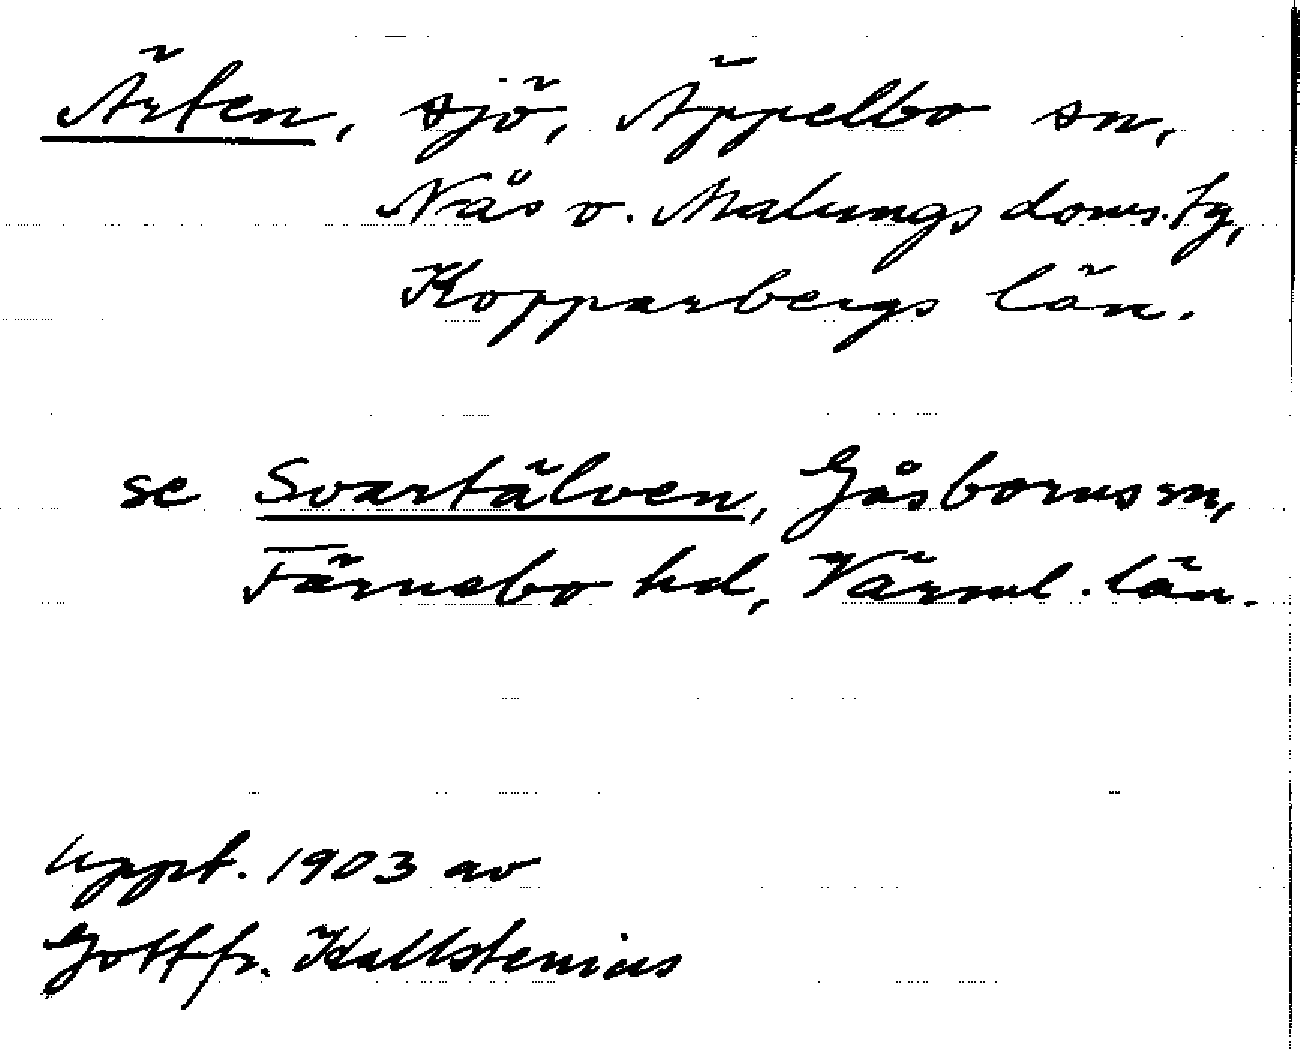 Ärten, sjö, Äppelbo sn,
Nås o. Malungs doms.tg,
Kopparbergs län.
se Svartälven, Gåsborns sn,
Färnebo hd, Värml. län.
Uppt. 1903 av
Gottfr. Kallstenius